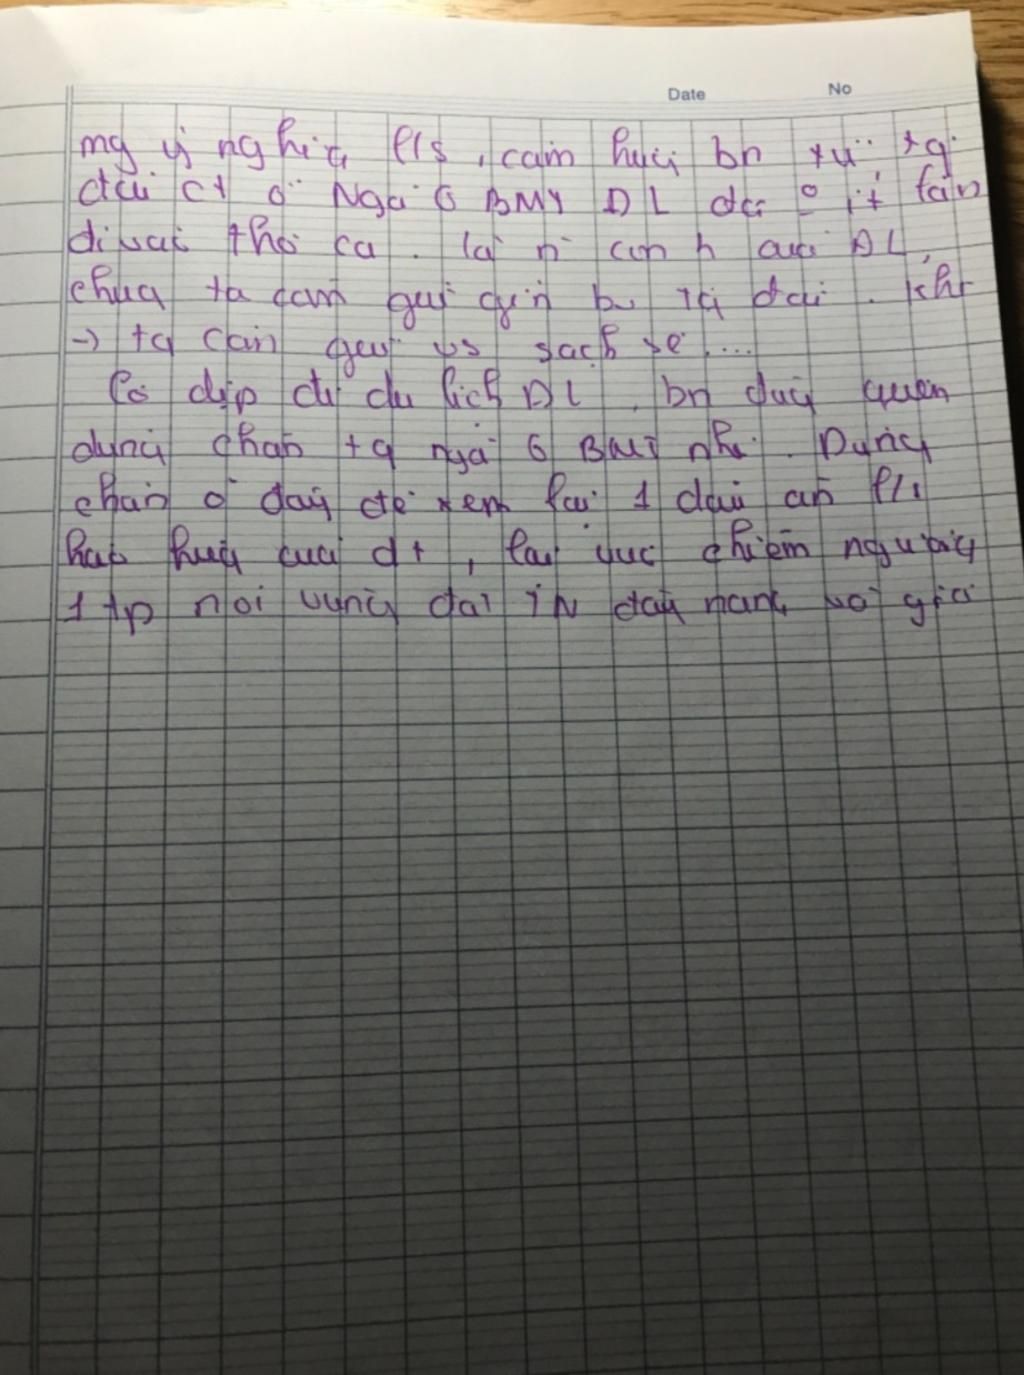 Date No
mg ý nghĩa l/s, cảm hứng bn từ tg
đài ct ở Ngã 6 BMT ĐL đã ít lần
đi vào thơ ca. là n
chúng ta cần giữ gìn tg đài.
-> ta cần giữ vs sạch sẽ ...
Có dịp đi du lịch ĐL, bn đừng quên
dừng chân tg ngã 6 BMT nhé. Dừng
chân ở đây để xem lại 1 dấu ấn l/s
hào hùng của dt, lại được chiêm ngưỡng
1 tp nơi vùng đất TN đầy nắng và gió